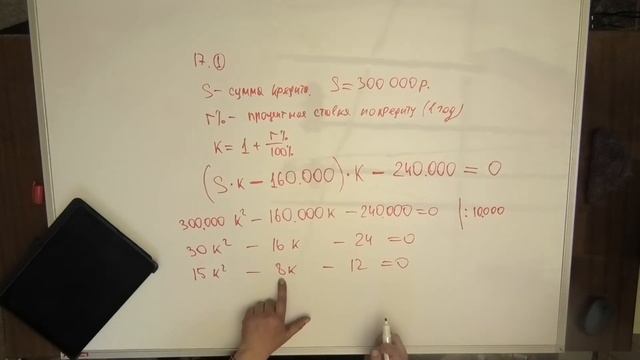 17. ①
S – сумма кредита. S = 300 000 р.
r% – процентная ставка по кредиту (1 год)
K = 1 + r%/100%
(S·K – 160.000)·K – 240.000 = 0
300.000 K² – 160.000 K – 240000 = 0 |: 10,000
30 K² – 16 K – 24 = 0
15 K² – 8K – 12 = 0